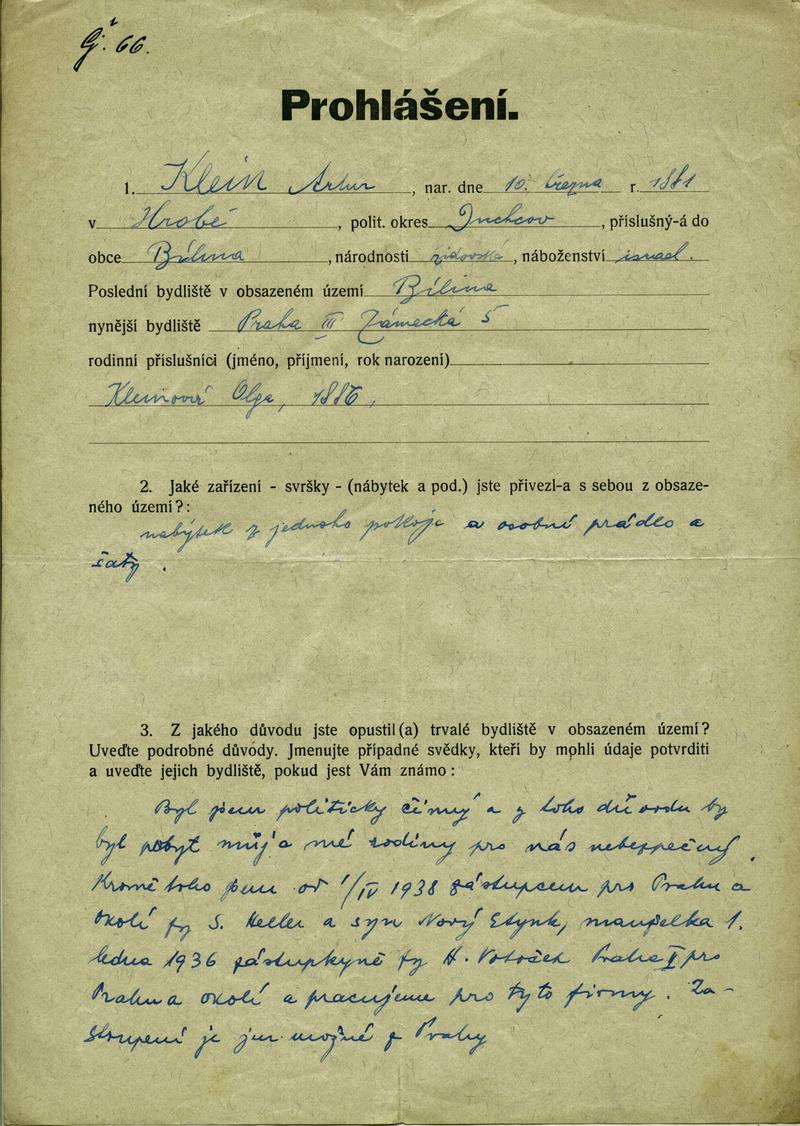 Gʹ. 66.
Prohlášení.
1. Klein Artur, nar. dne 10. března r. 1881
v Hrobě, polit. okres Duchcov, příslušný-á do
obce Bílina, národnosti židovská, náboženství israel.
Poslední bydliště v obsazeném území Bílina
nynější bydliště Praha III Zámecká 5
rodinní příslušníci (jméno, příjmení, rok narození)
Kleinová Olga, 1886,
2. Jaké zařízení - svršky - (nábytek a pod.) jste přivezl-a s sebou z obsaze-
ného území?:
nábytek z jednoho pokoje a osobné prádlo a
šaty.
3. Z jakého důvodu jste opustil(a) trvalé bydliště v obsazeném území?
Uveďte podrobné důvody. Jmenujte případné svědky, kteří by mohli údaje potvrditi
a uveďte jejich bydliště, pokud jest Vám známo:
Byl jsem politicky činný a z toho důvodu by
byl pobyt můj a mé rodiny pro nás nebezpečný.
Kromě toho jsem od 1/IV 1938 zástupcem pro Prahu a
okolí fy S. Heller a syn Nový Etynk, manželka 1.
ledna 1936 zástupkyně fy H. Votoček Praha I pro
Prahu a okolí a pracujeme pro tyto firmy. Za-
stoupení je jen možné z Prahy